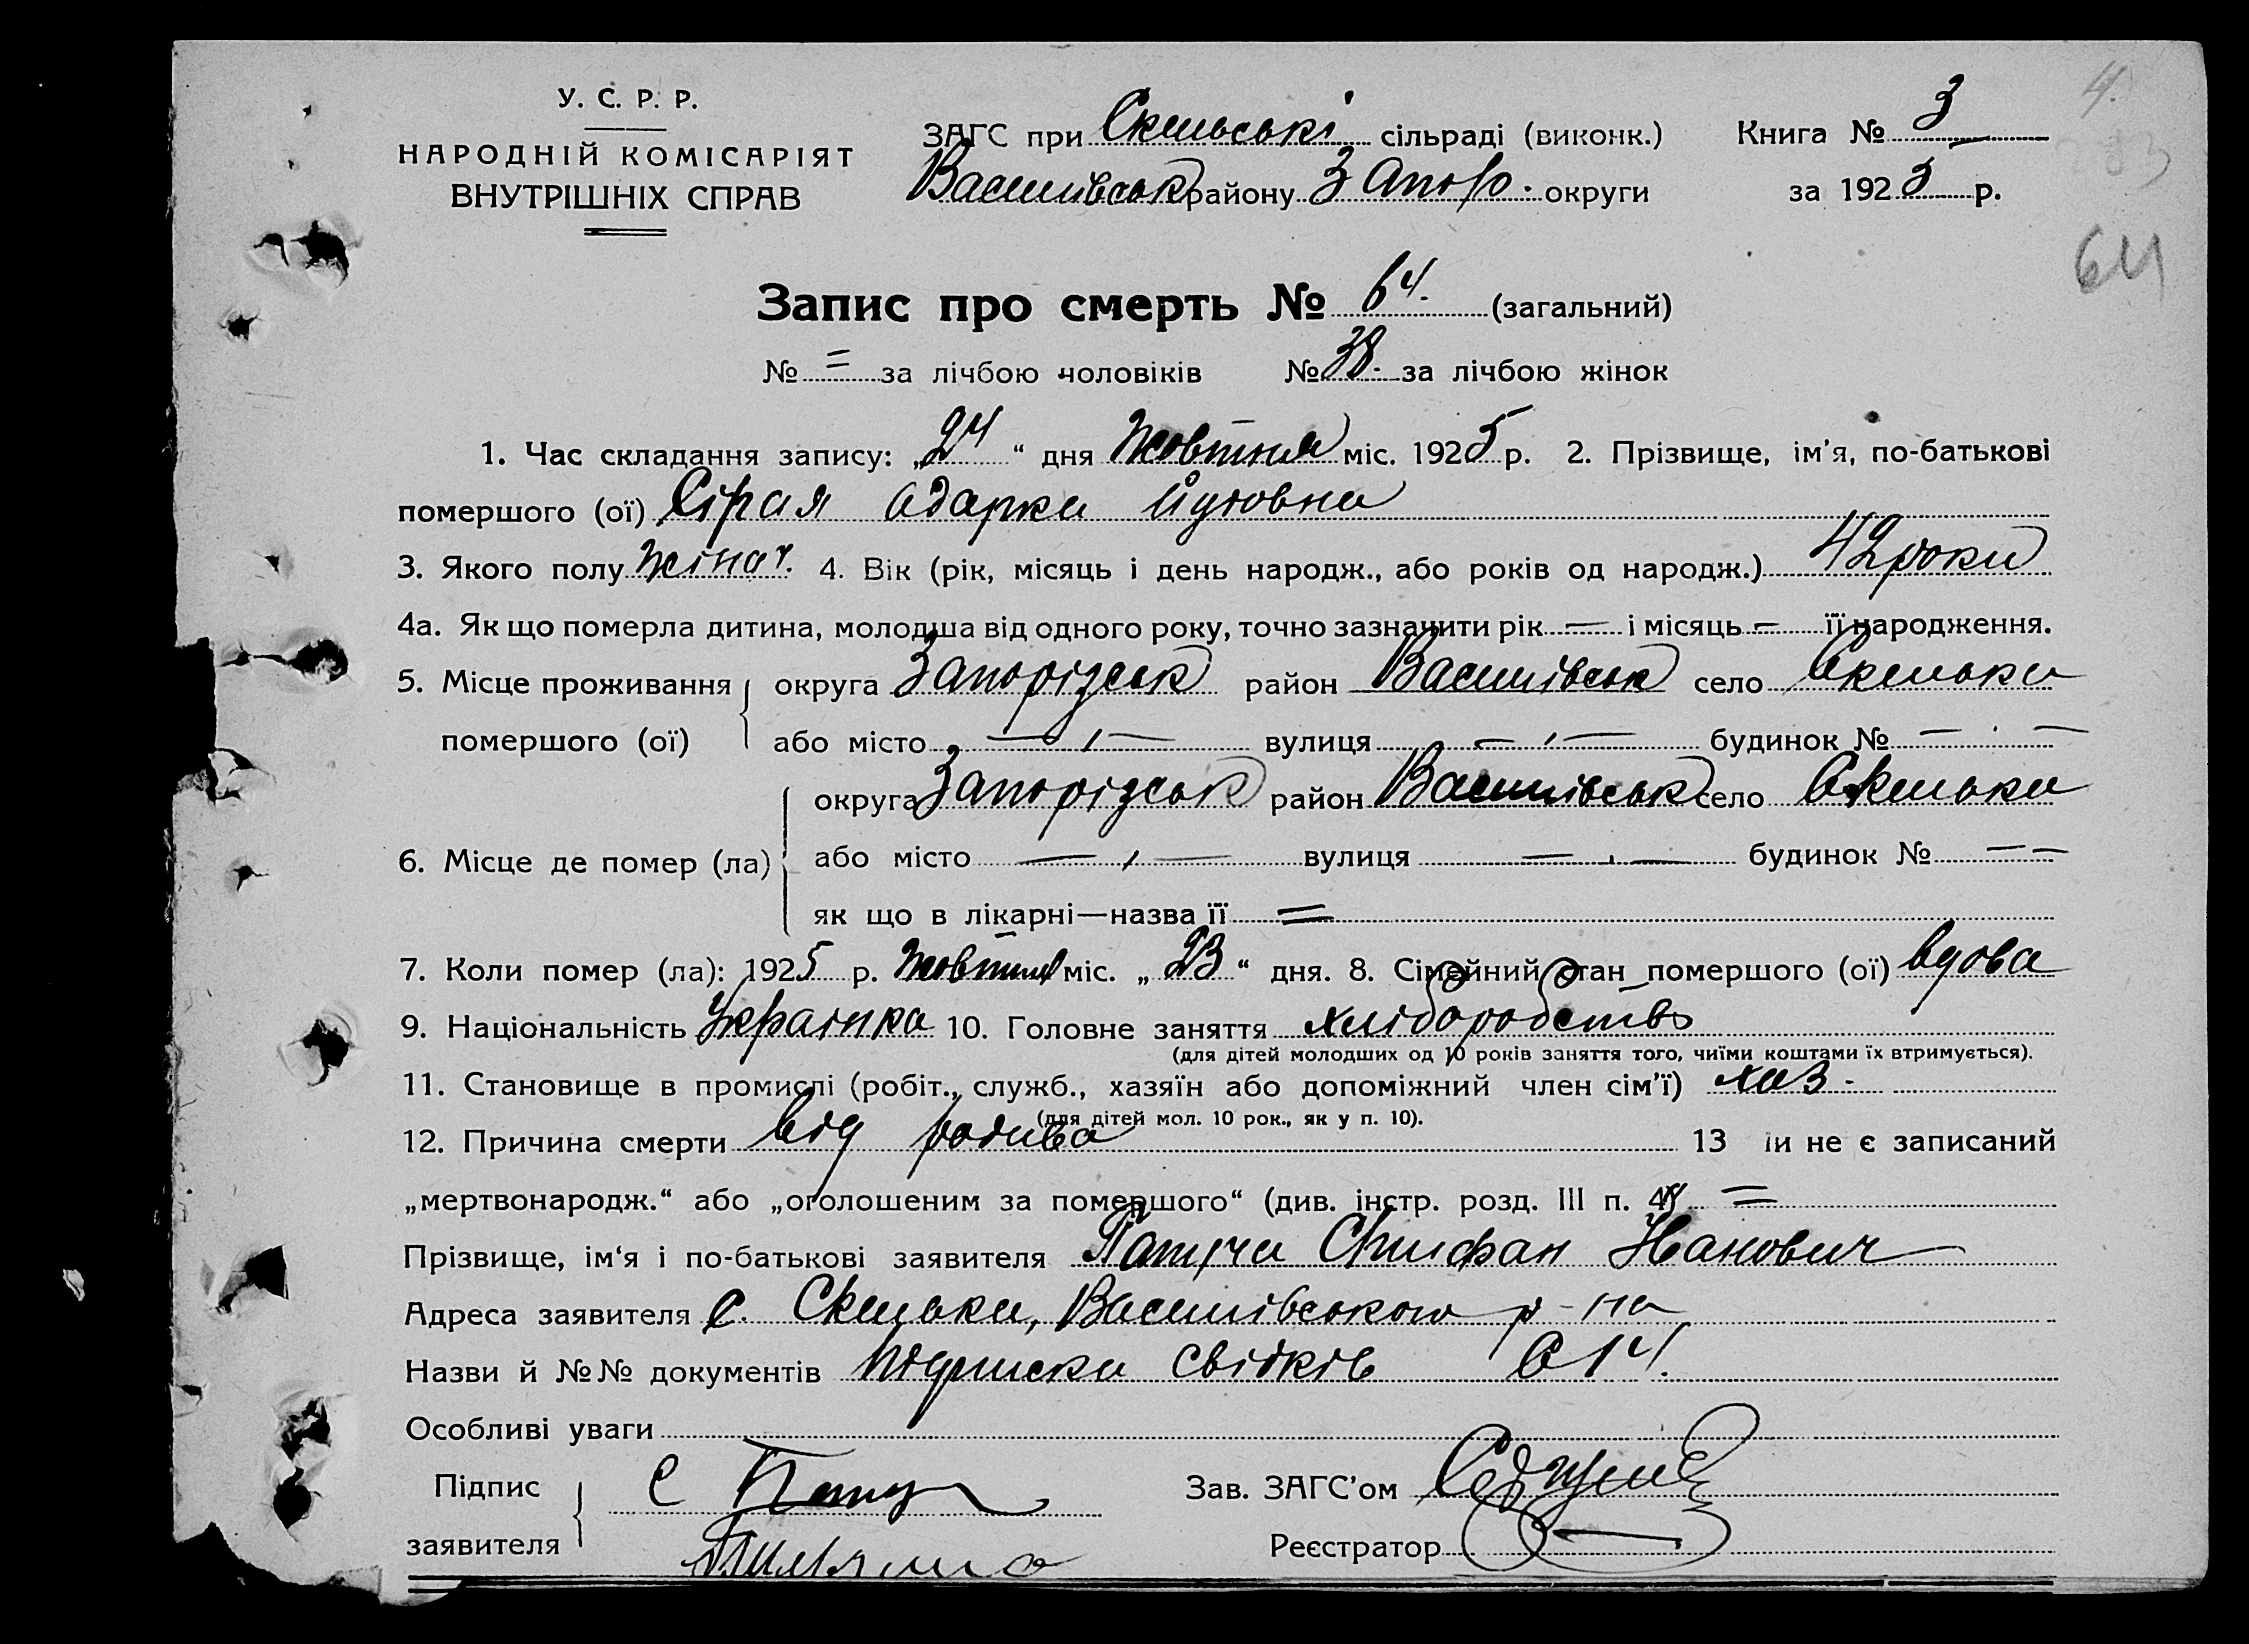 У. С. Р. Р.
НАРОДНІЙ КОМІСАРІЯТ
ВНУТРІШНІХ СПРАВ
ЗАГС при Скельські сільраді (виконк.)
Василівськ району Запор. округи
Книга № 3
за 1925 р.
4.
64
Запис про смерть № 64. (загальний)
№ = за лічбою чоловіків № 38. за лічбою жінок
1. Час складання запису: „24“ дня Жовтня міс. 1925 р. 2. Прізвище, ім'я, по-батькові
помершого (ої) Сірая Одарка
3. Якого полу жіноч. 4. Вік (рік, місяць і день народж., або років од народж.) 42 роки
4а. Як що померла дитина, молодша від одного року, точно зазначити рік — і місяць — її народження.
5. Місце проживання округа Запорізськ район Василівськ село Скельки
помершого (ої) або місто — „ — вулиця — „ — будинок № — „ —
округа Запорізськ район Василівськ село Скельки
6. Місце де помер (ла) або місто — „ — вулиця — „ — будинок № — —
як що в лікарні—назва її =
7. Коли помер (ла): 1925 р. Жовтня міс. „23“ дня. 8. Сімейний стан помершого (ої) вдова
9. Національність Українка 10. Головне заняття хліборобство
(для дітей молодших од 10 років заняття того, чиїми коштами їх втримується).
11. Становище в промислі (робіт., служб., хазяїн або допоміжний член сім'ї) хаз.
(для дітей мол. 10 рок., як у п. 10).
12. Причина смерти від 13 и не є записаний
„мертвонародж.“ або „оголошеним за помершого“ (див. інстр. розд. III п. =
Прізвище, ім'я і по-батькові заявителя Іванович
Адреса заявителя с. Скельки, Василівського р-на
Назви й №№ документів підписка свідків
Особливі уваги
Підпис С
заявителя
Зав. ЗАГС'ом
Реєстратор